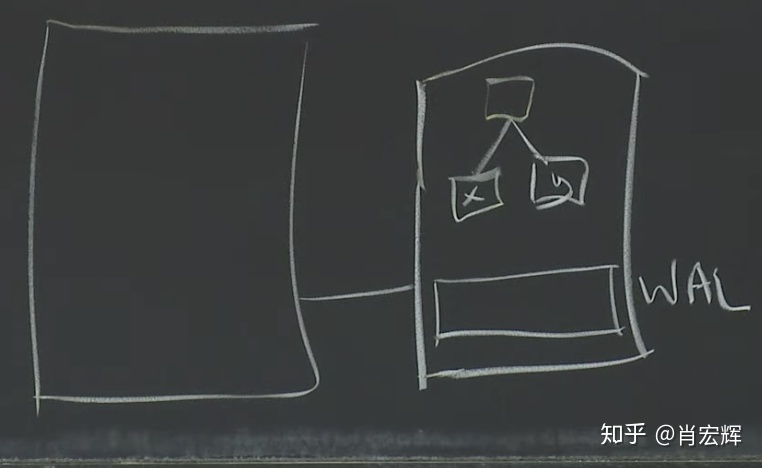 x
y
WAL
知乎 @肖宏辉